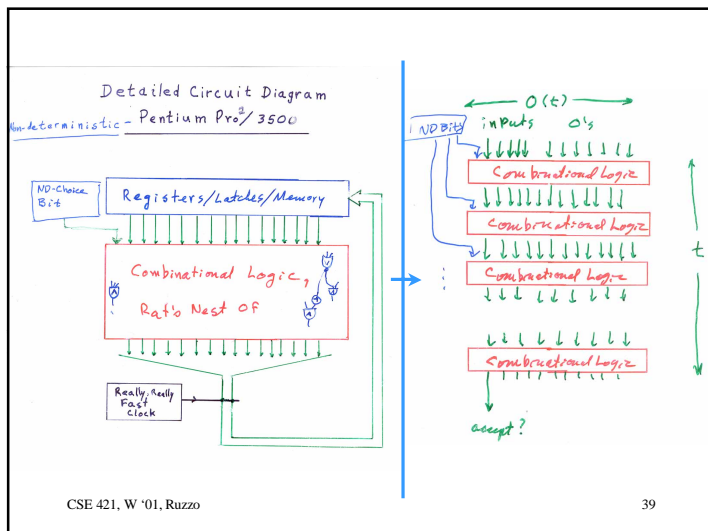 Detailed Circuit Diagram
Non-deterministic - Pentium Pro²/3500
ND-Choice
Bit
Registers/Latches/Memory
Combinational Logic,
Rat's Nest Of
Really, Really
Fast
Clock
O(t)
ND Bits
inputs O's
Combinational Logic
Combinational Logic
Combinational Logic
t
Combinational Logic
accept?
CSE 421, W ‘01, Ruzzo
39